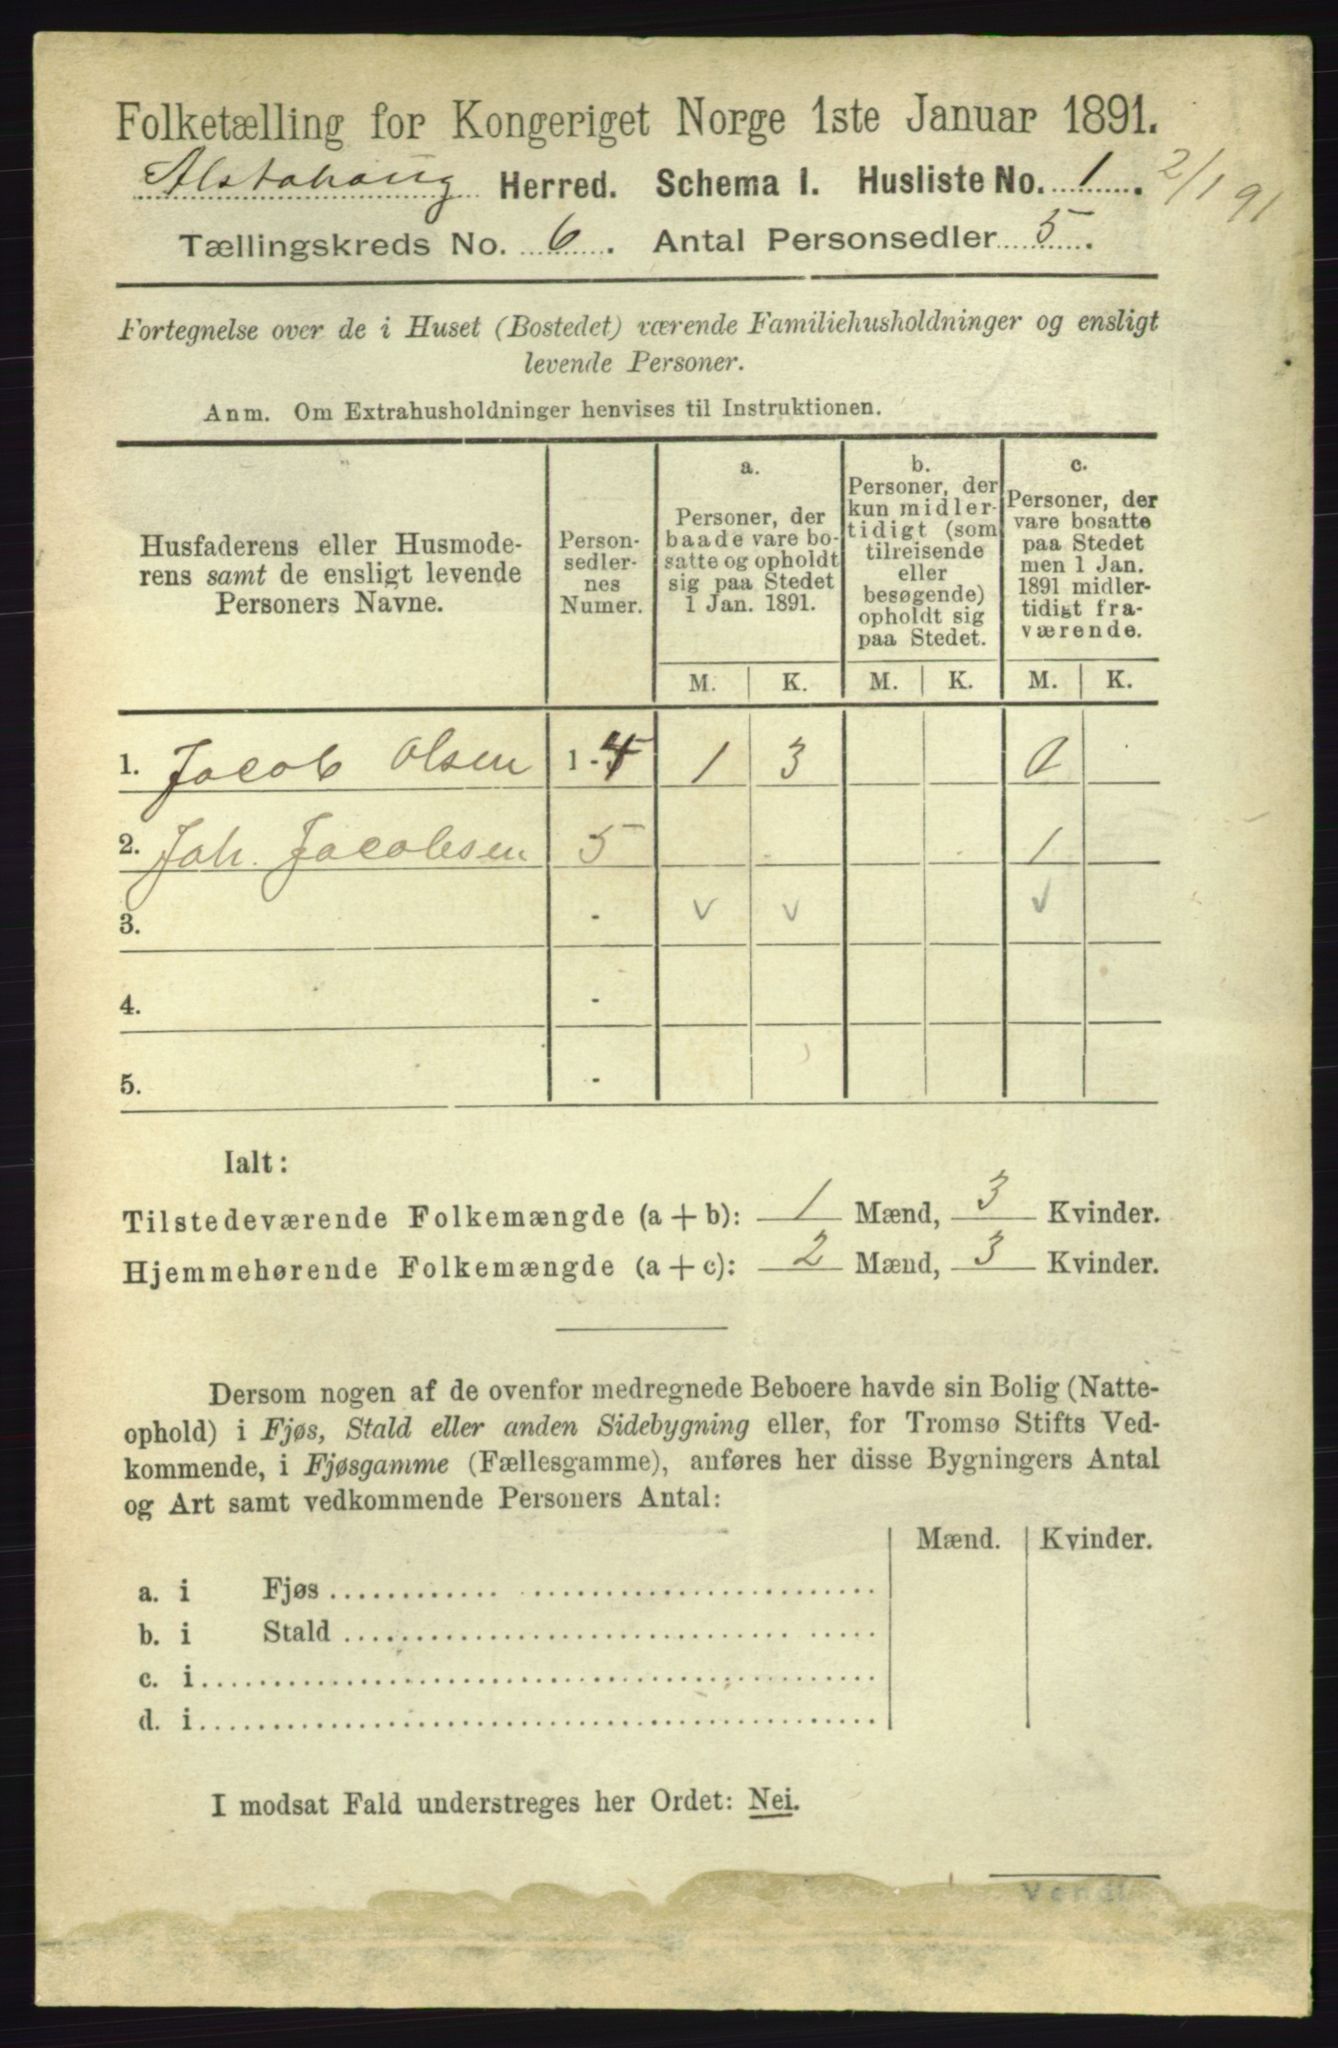 Folketælling for Kongeriget Norge 1ste Januar 1891.
Alstahaug Herred. Schema I. Husliste No. 1. 2/1 91
Tællingskreds No. 6. Antal Personsedler 5.
Fortegnelse over de i Huset (Bostedet) værende Familiehusholdninger og ensligt
levende Personer.
Anm. Om Extrahusholdninger henvises til Instruktionen.
Husfaderens eller Husmode-
rens samt de ensligt levende
Personers Navne.
Person-
sedler-
nes
Numer.
a.
Personer, der
baade vare bo-
satte og opholdt
sig paa Stedet
1 Jan. 1891.
b.
Personer, der
kun midler-
tidigt (som
tilreisende
eller
besøgende)
opholdt sig
paa Stedet.
c.
Personer, der
vare bosatte
paa Stedet
men 1 Jan.
1891 midler-
tidigt fra-
værende.
M. K. M. K. M. K.
1. Jacob Olsen 1 - 4 1 3 0
2. Joh. Jacobsen 5 1
3. - v v v
4. -
5. -
Ialt:
Tilstedeværende Folkemængde (a + b): 1 Mænd, 3 Kvinder.
Hjemmehørende Folkemængde (a + c): 2 Mænd, 3 Kvinder.
Dersom nogen af de ovenfor medregnede Beboere havde sin Bolig (Natte-
ophold) i Fjøs, Stald eller anden Sidebygning eller, for Tromsø Stifts Ved-
kommende, i Fjøsgamme (Fællesgamme), anføres her disse Bygningers Antal
og Art samt vedkommende Personers Antal:
Mænd. Kvinder.
a. i Fjøs
b. i Stald
c. i
d. i
I modsat Fald understreges her Ordet: Nei.
Vend!